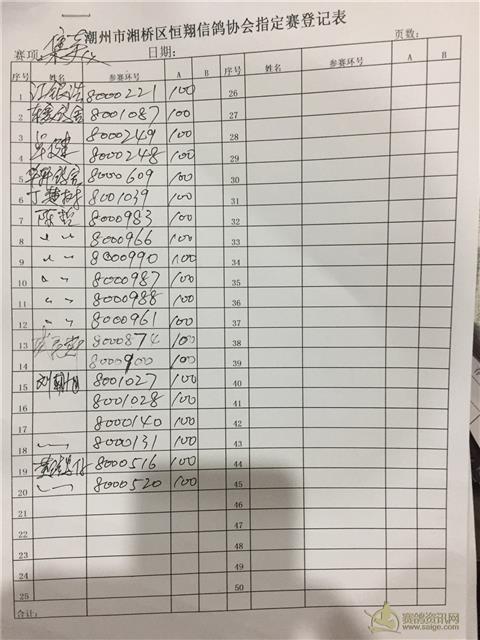 潮州市湘桥区恒翔信鸽协会指定赛登记表
赛项: 日期: 页数:
序号 姓名 参赛环号 A B 序号 姓名 参赛环号 A B
1 8000221 100 26
2 8001087 100 27
3 8000249 100 28
4 8000248 100 29
5 8000609 100 30
6 丁楚 8001039 100 31
7 陈哲 8000983 100 32
8 〃 〃 8000966 100 33
9 〃 〃 8000990 100 34
10 〃 〃 8000987 100 35
11 〃 〃 8000988 100 36
12 〃 〃 8000961 100 37
13 8000874 100 38
14 8000900 100 39
15 刘朝 8001027 100 40
16 8001028 100 41
17 8000140 100 42
18 8000131 100 43
19 8000516 100 44
20 8000520 100 45
21 46
22 47
23 48
24 49
25 50
合计:
赛鸽资讯网
www.saige.com